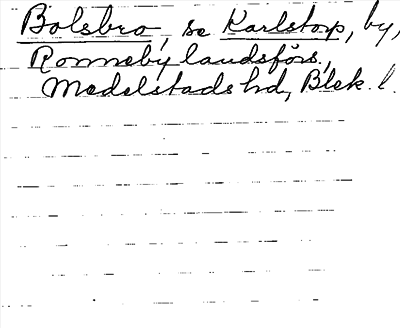 Bolsbro, se Karlstorp, by,
Ronneby landsförs.,
Medelstads hd, Blek. l.